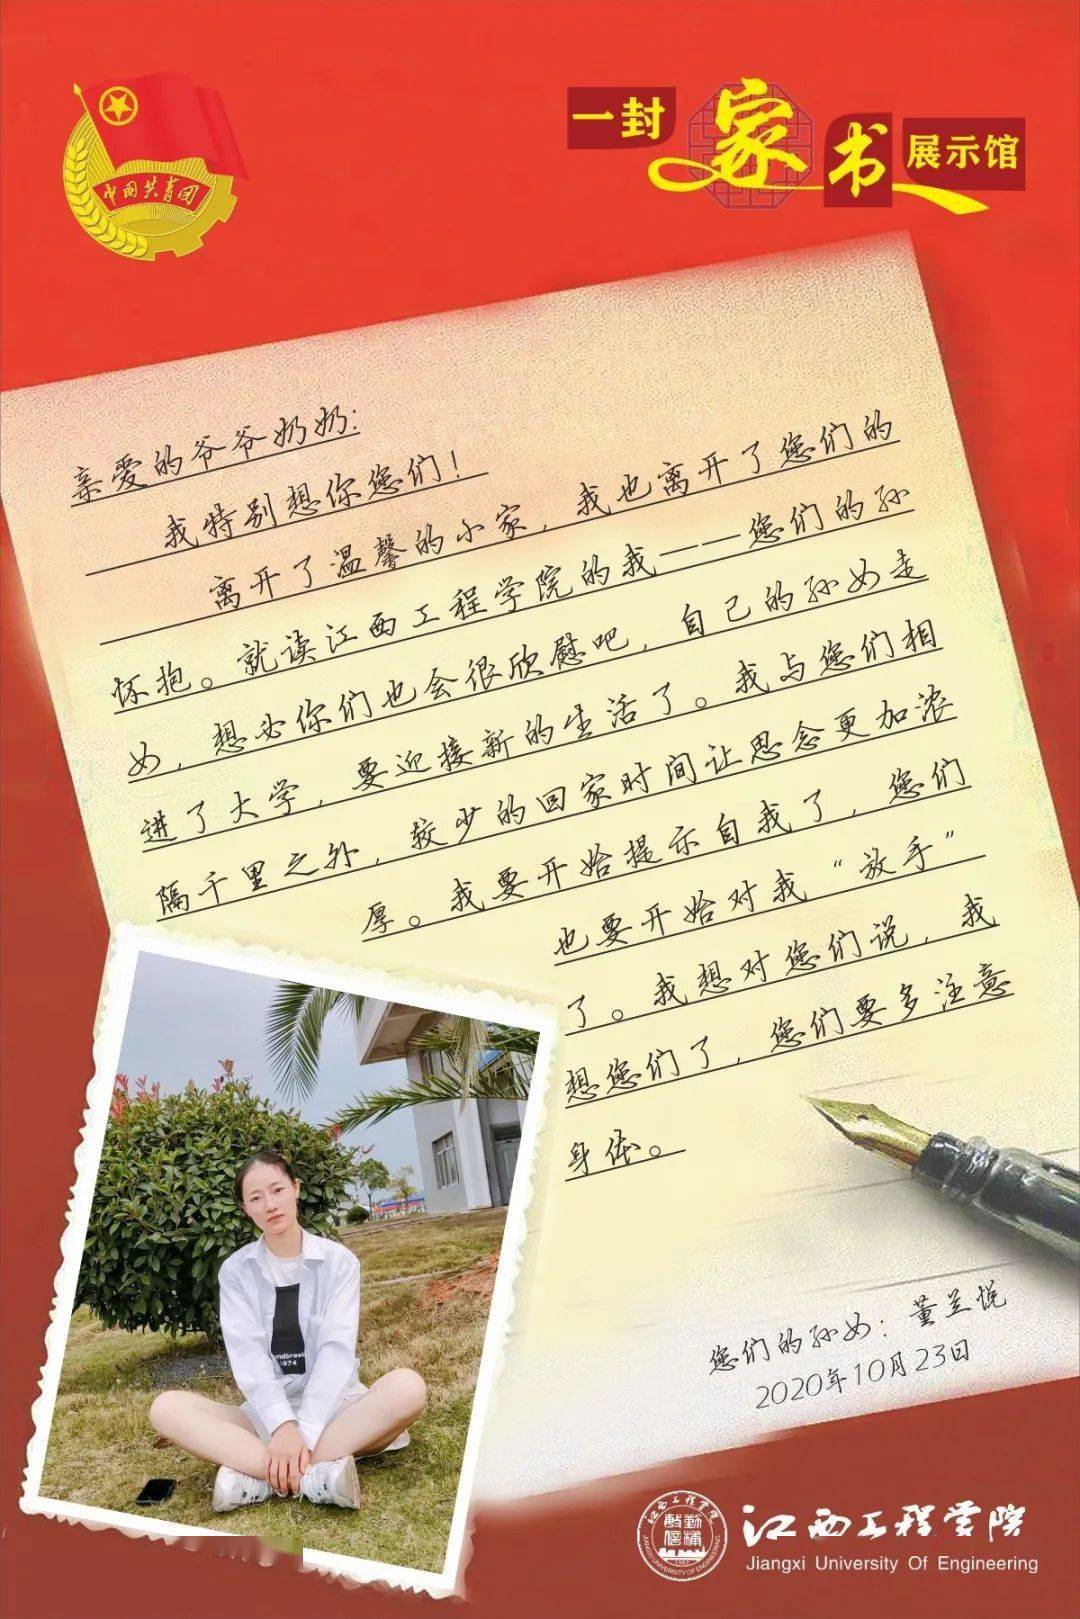 中国共青团
一封家书展示馆
亲爱的爷爷奶奶:
我特别想你您们！
离开了温馨的小家，我也离开了您们的
怀抱。就读江西工程学院的我——您们的孙
女，想必你们也会很欣慰吧，自己的孙女走
进了大学，要迎接新的生活了。我与您们相
隔千里之外，较少的回家时间让思念更加浓
厚。我要开始提示自我了，您们
也要开始对我“放手”
了。我想对您们说，我
想您们了，您们要多注意
身体。
您们的孙女：董兰悦
2020年10月23日
1974
江西工程学院
JIANGXI UNIVERSITY OF ENGINEERING
江西工程学院
Jiangxi University Of Engineering